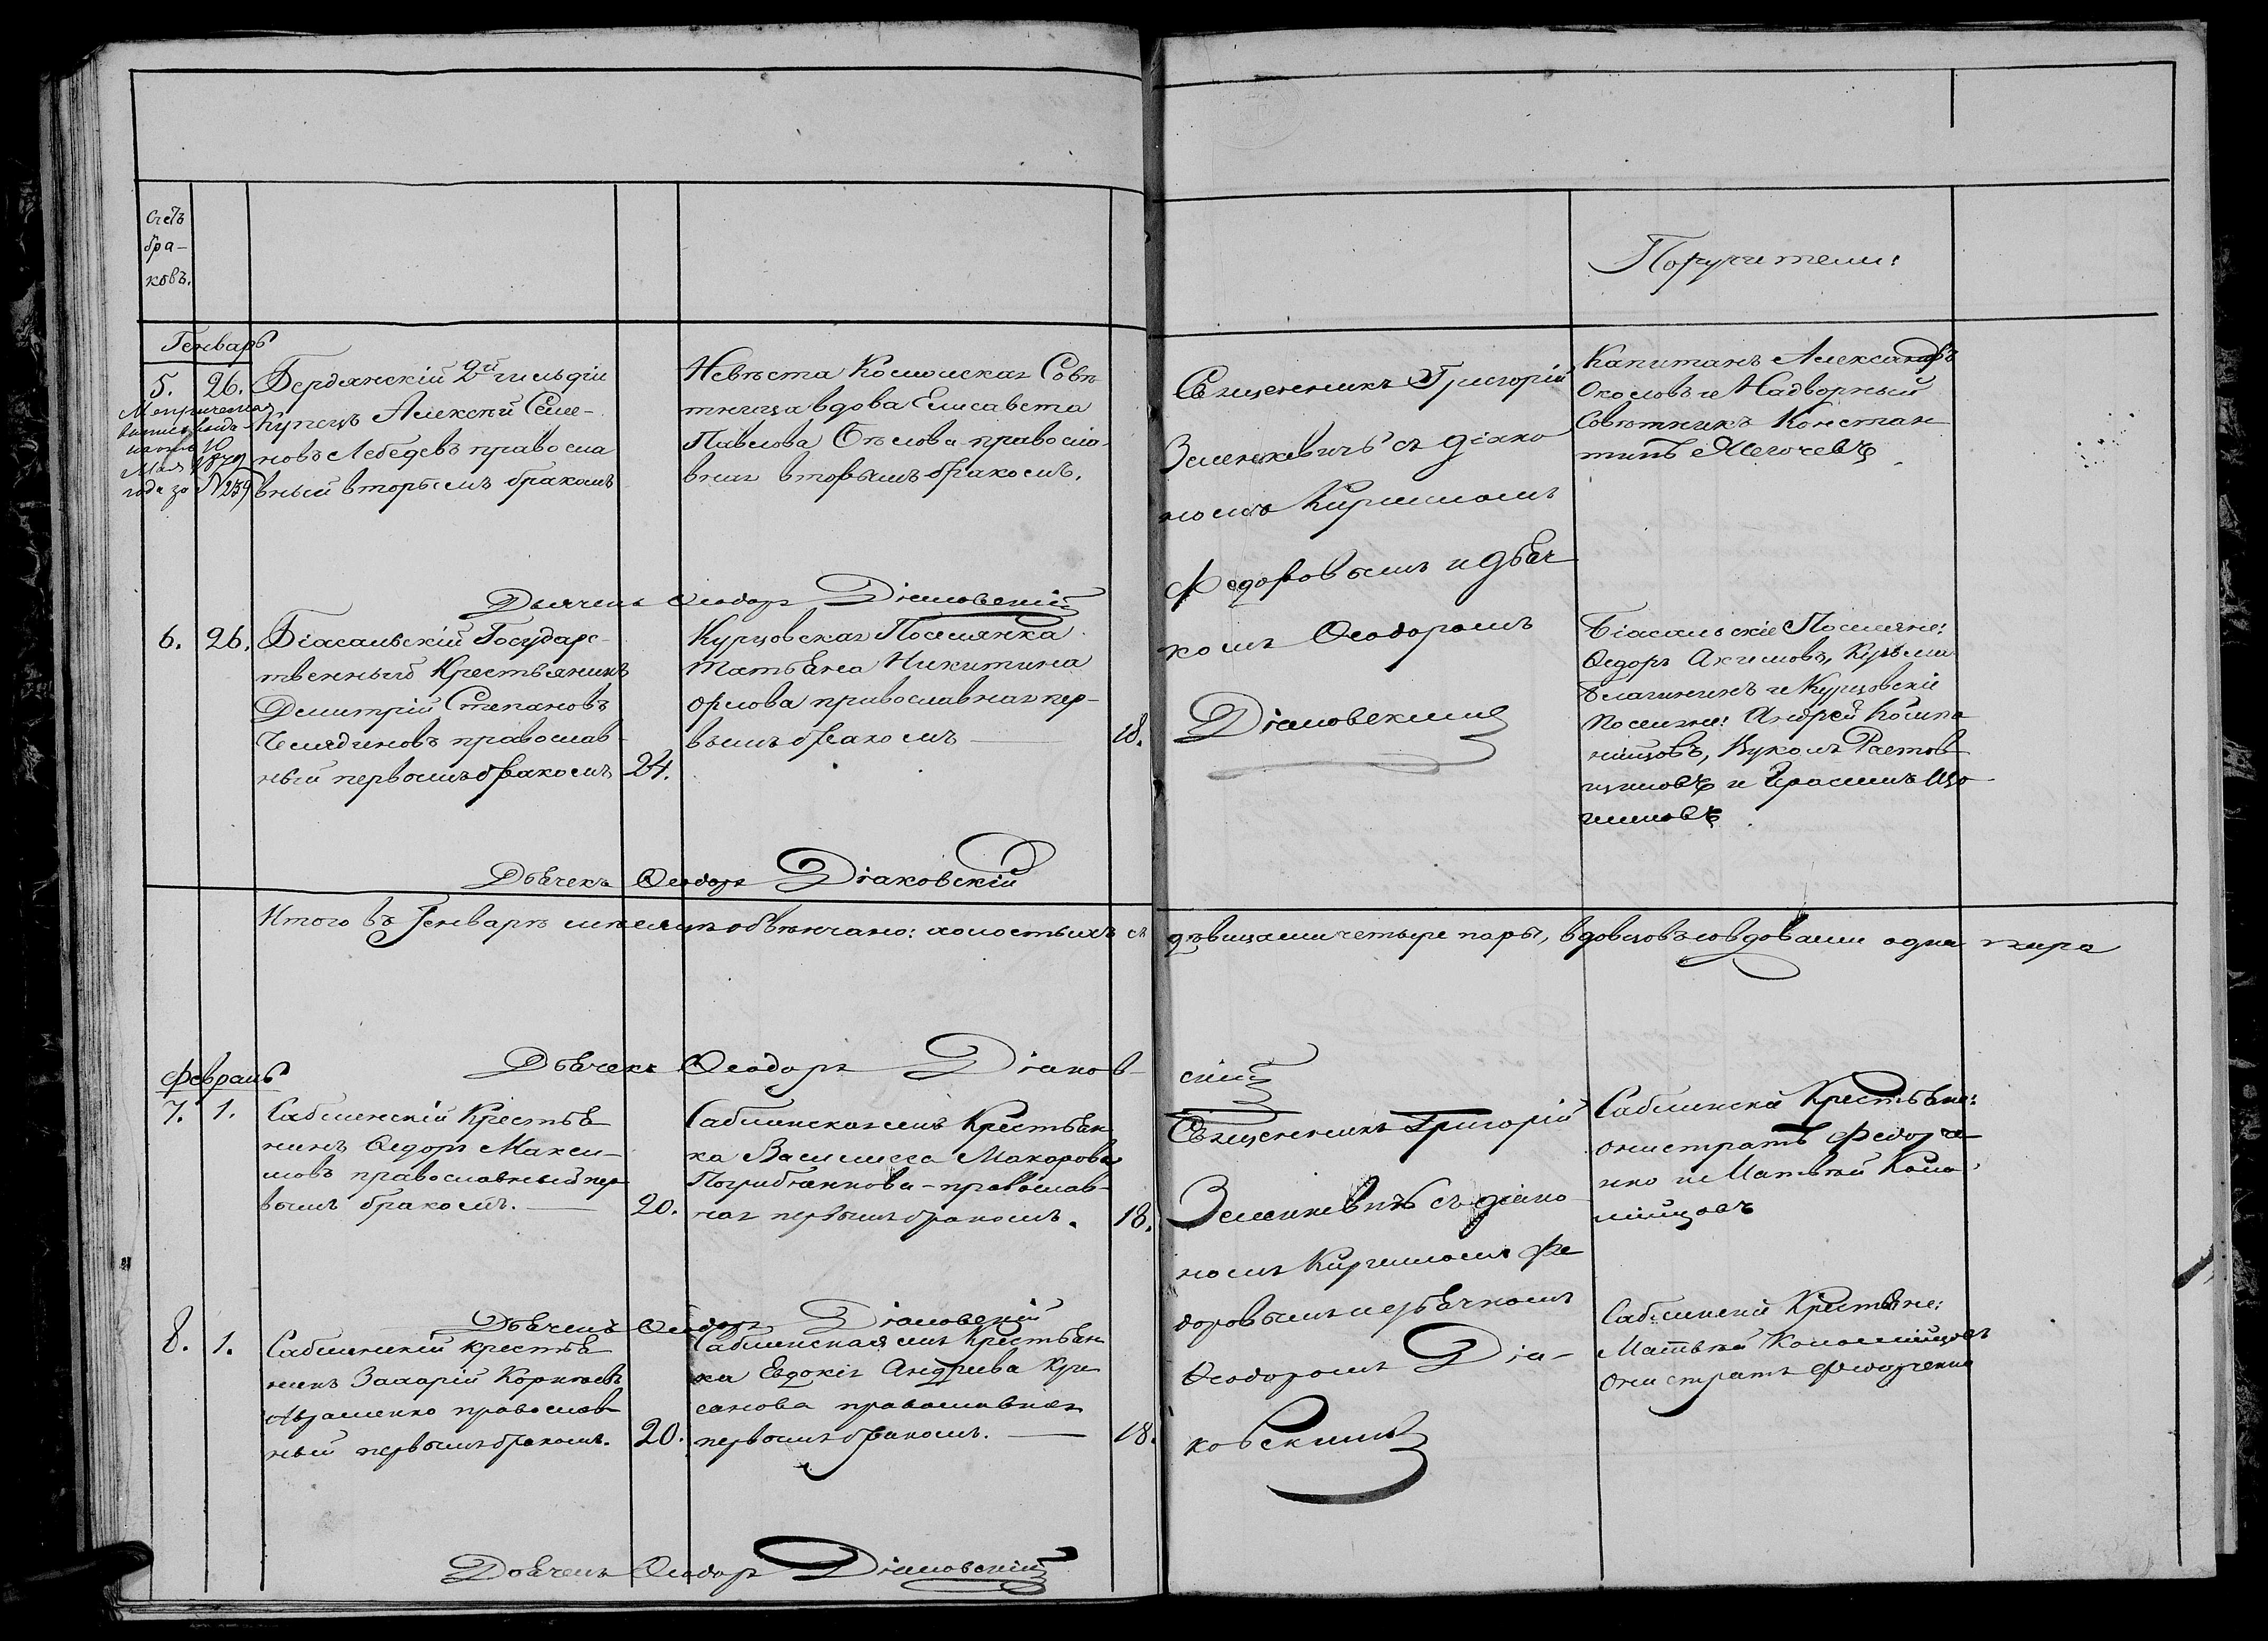 Счетъ
бра-
ковъ.
Поручители:
Генварь
5. 26. Бердянскій 2й гильдіи
Купецъ Алексѣй Семе-
новъ Лебедевъ правосла
вный вторымъ бракомъ
Метрическая
Мая 1879
года за №259
Невѣста Совѣ
тница вдова Елисавета
Павлова Бѣлова правосла-
вная вторымъ бракомъ.
Священникъ Григорій
Зеленкевичъ съ діако
номъ Кирилломъ
Федоровымъ и дьяч
комъ Ѳеодоромъ
Діаковскимъ
Капитанъ Александръ
Околовъ и Надворный
Совѣтникъ Констан
тинъ
Дьячекъ Ѳеодоръ Діаковскій
6. 26. Біасальскій Государс-
твенный Крестьянинъ
Димитрій Степановъ
православ-
ный первымъ бракомъ 24.
Курцовская Поселянка
Татьяна Никитина
Орлова православная пер-
вымъ бракомъ 18.
Біасальскіе Поселяне:
Ѳедоръ Акимовъ, Кузьма
и Курцовскіе
Поселяне: Андрей Колма
Вуколъ
и Герасимъ
Дьячекъ Ѳеодоръ Діаковскій
Итого въ Генварѣ мѣсяцѣ обвѣнчано: холостыхъ съ дѣвицами четыре пары, вдовцовъ со вдовами одна пара
Дьячекъ Ѳеодоръ Діаков-
скій
Февраль
7. 1. Саблинскій Крестья
нинъ Ѳедоръ Макси-
мовъ православный пер
вымъ бракомъ. 20.
Саблинская Крестьян
ка Василисса Макарова
православ-
ная первымъ бракомъ. 18.
Священникъ Григорій
Зеленкевичъ съ діако
номъ Кирилломъ Фе
доровымъ и дьячкомъ
Ѳеодоромъ Діа-
ковскимъ
Саблинскіе Крестьяне:
Онистратъ Федорче
нко и Матвѣй Коло
мійцовъ
Дьячекъ Ѳеодоръ Діаковскій
8. 1. Саблинскій крестья
нинъ Захарій Корнѣевъ
Авраменко православ
ный первымъ бракомъ. 20.
Саблинская Крестьян
ка Евдокія Андреева
православная
первымъ бракомъ. 18.
Саблинскіе Крестьяне:
Матвѣй Коломійцовъ
Онистратъ Федорченко
Дьячекъ Ѳеодоръ Діаковскій